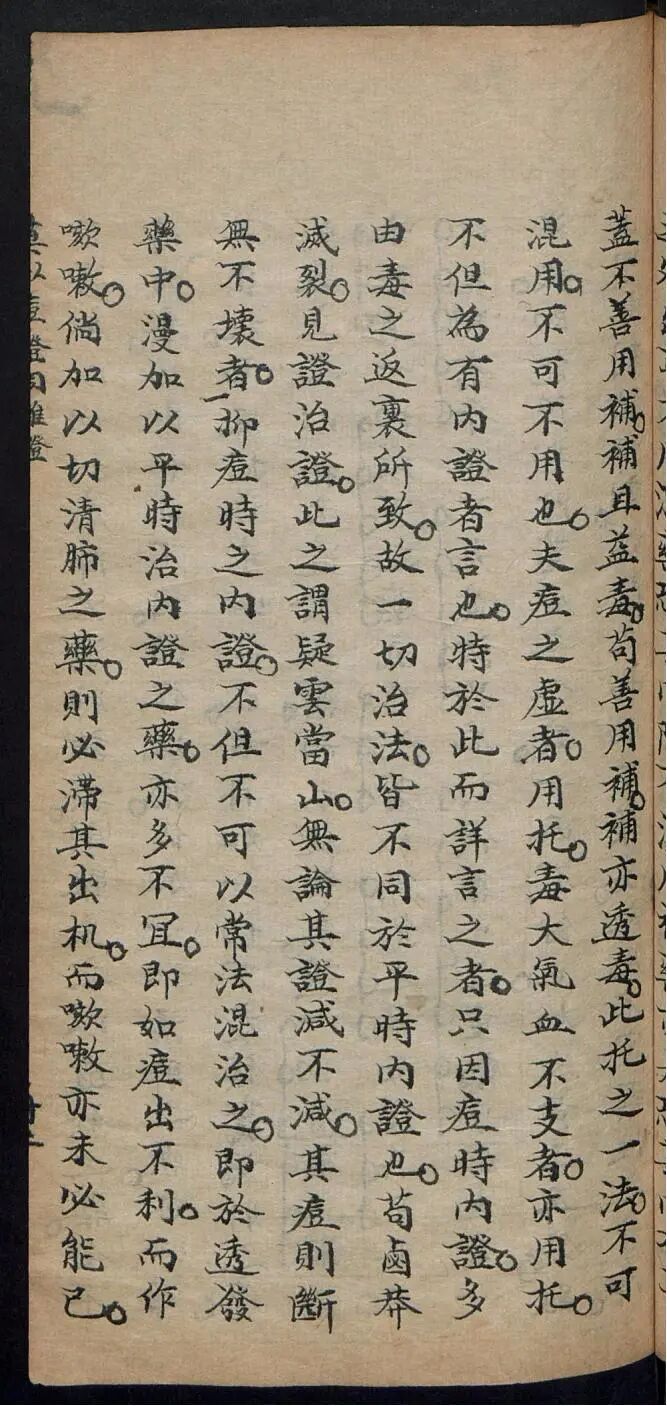 蓋不善用補。補且益毒。苟善用補。補亦透毒。此托之一法。不可
混用。不可不用也。夫痘之虛者。用托。毒大氣血不支者。亦用托。
不但為有內證者言也。特於此而詳言之者。只因痘時內證。多
由毒之返裏所致。故一切治法。皆不同於平時內證也。苟鹵莽
滅裂。見證治證。此之謂疑雲當山。無論其證減不減。其痘則斷
無不壞者。抑痘時之內證。不但不可以常法混治之。即於透發
藥中。漫加以平時治內證之藥。亦多不冝。即如痘出不利。而作
嗽嗽。倘加以切清肺之藥。則必滯其出机。而嗽嗽亦未必能已。
莫以痘證同雜證